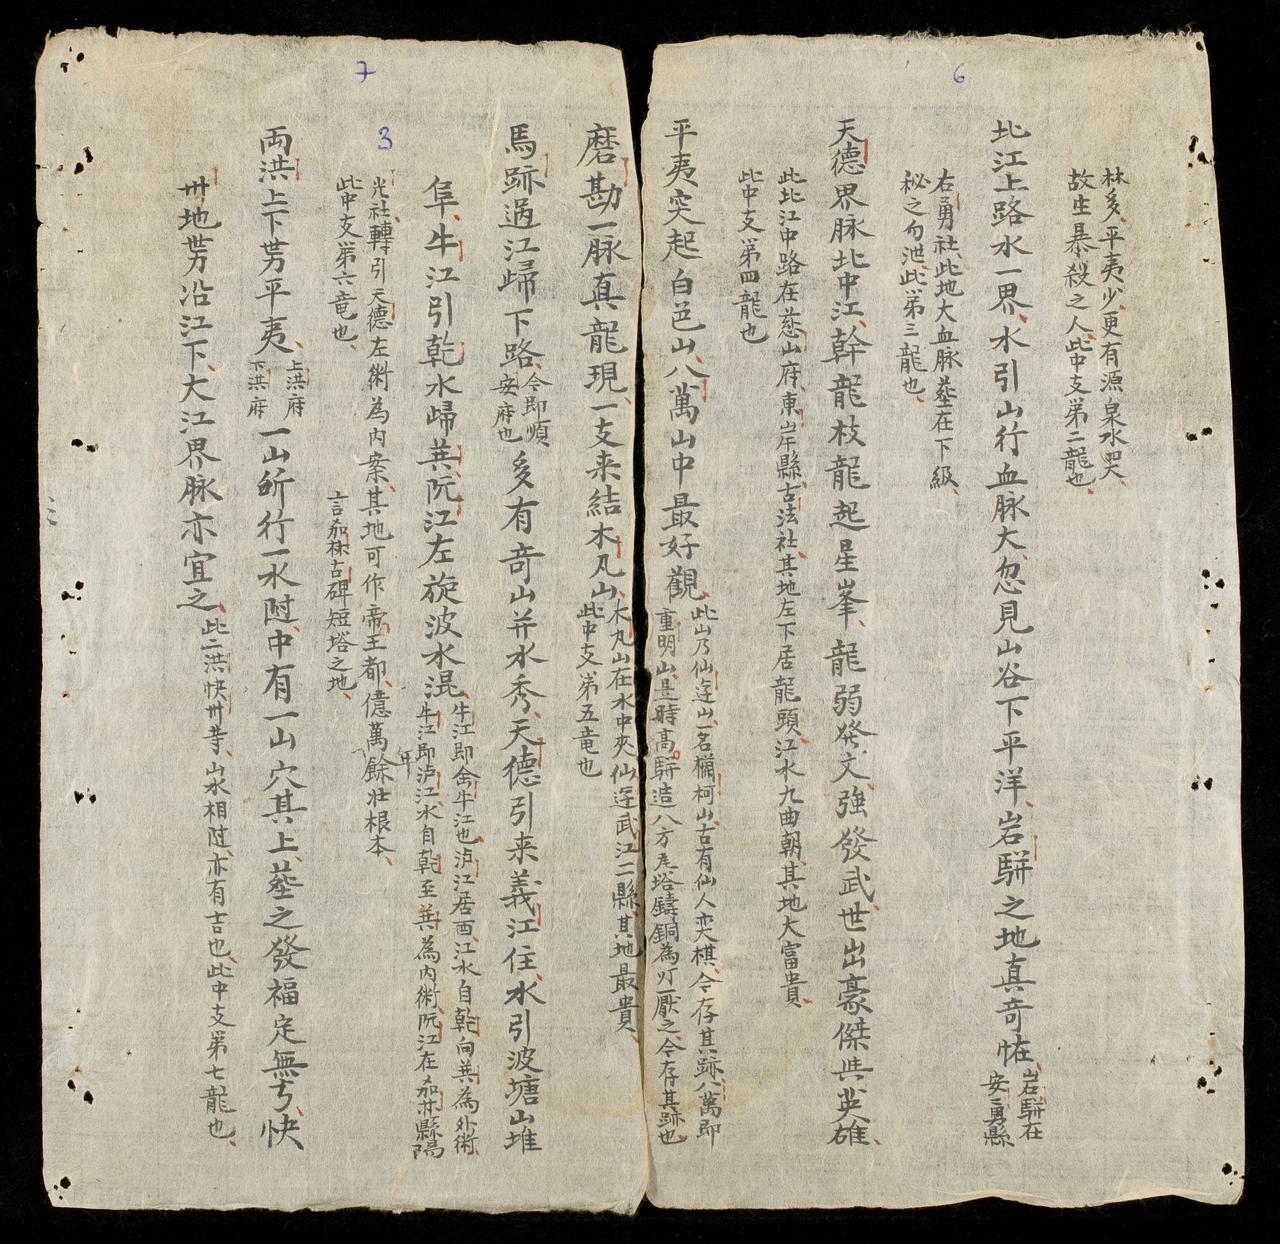 6
林多平夷少更有源泉水哭
故生暴殺之人此中支第二龍也
北江上路水一界水引山行血脉大忽見山谷下平洋岩駢之地真竒恠
岩駢在
安勇縣
右勇社此地大血脉塟在下級
秘之勿泄此第三龍也
天德界脉北中江幹龍枝龍起星峯龍弱發文強發武世出豪傑與英雄
此北江中路在慈山府東岸縣古法社其地左下居龍頭江水九曲朝其地大富貴
此中支第四龍也
平夷突起白邑山八萬山中最好觀
此山乃仙逰山一名爛柯山古有仙人奕棋今存其跡八萬即
重明山是時高駢造八方塔鑄銅為厭之今存其跡也
7
磨勘一脉真龍現一支来結木凡山
木丸山在水中夾仙逰武江二縣其地最貴
此中支第五竜也
馬跡過江歸下路
今即順
安府也
多有竒山并水秀天德引来義江住水引波塘山堆
阜牛江引乾水歸巽阮江左旋波水混
牛江即金牛江也泸江居西江水自乾向巽為外術
牛江即泸江水自乾至巽為内術阮江在茄林縣陽
3
光社轉引天德左術為内案其地可作帝王都億萬餘年壯根本
言茄林古碑短塔之地
此中支第六竜也
両洪上下势平夷
上洪府
下洪府
一山所行一水附中有一山穴其上塟之發福定無亐快
卅地势沿江下大江界脉亦宜之
此二洪快卅等山水相附亦有吉也此中支第七龍也